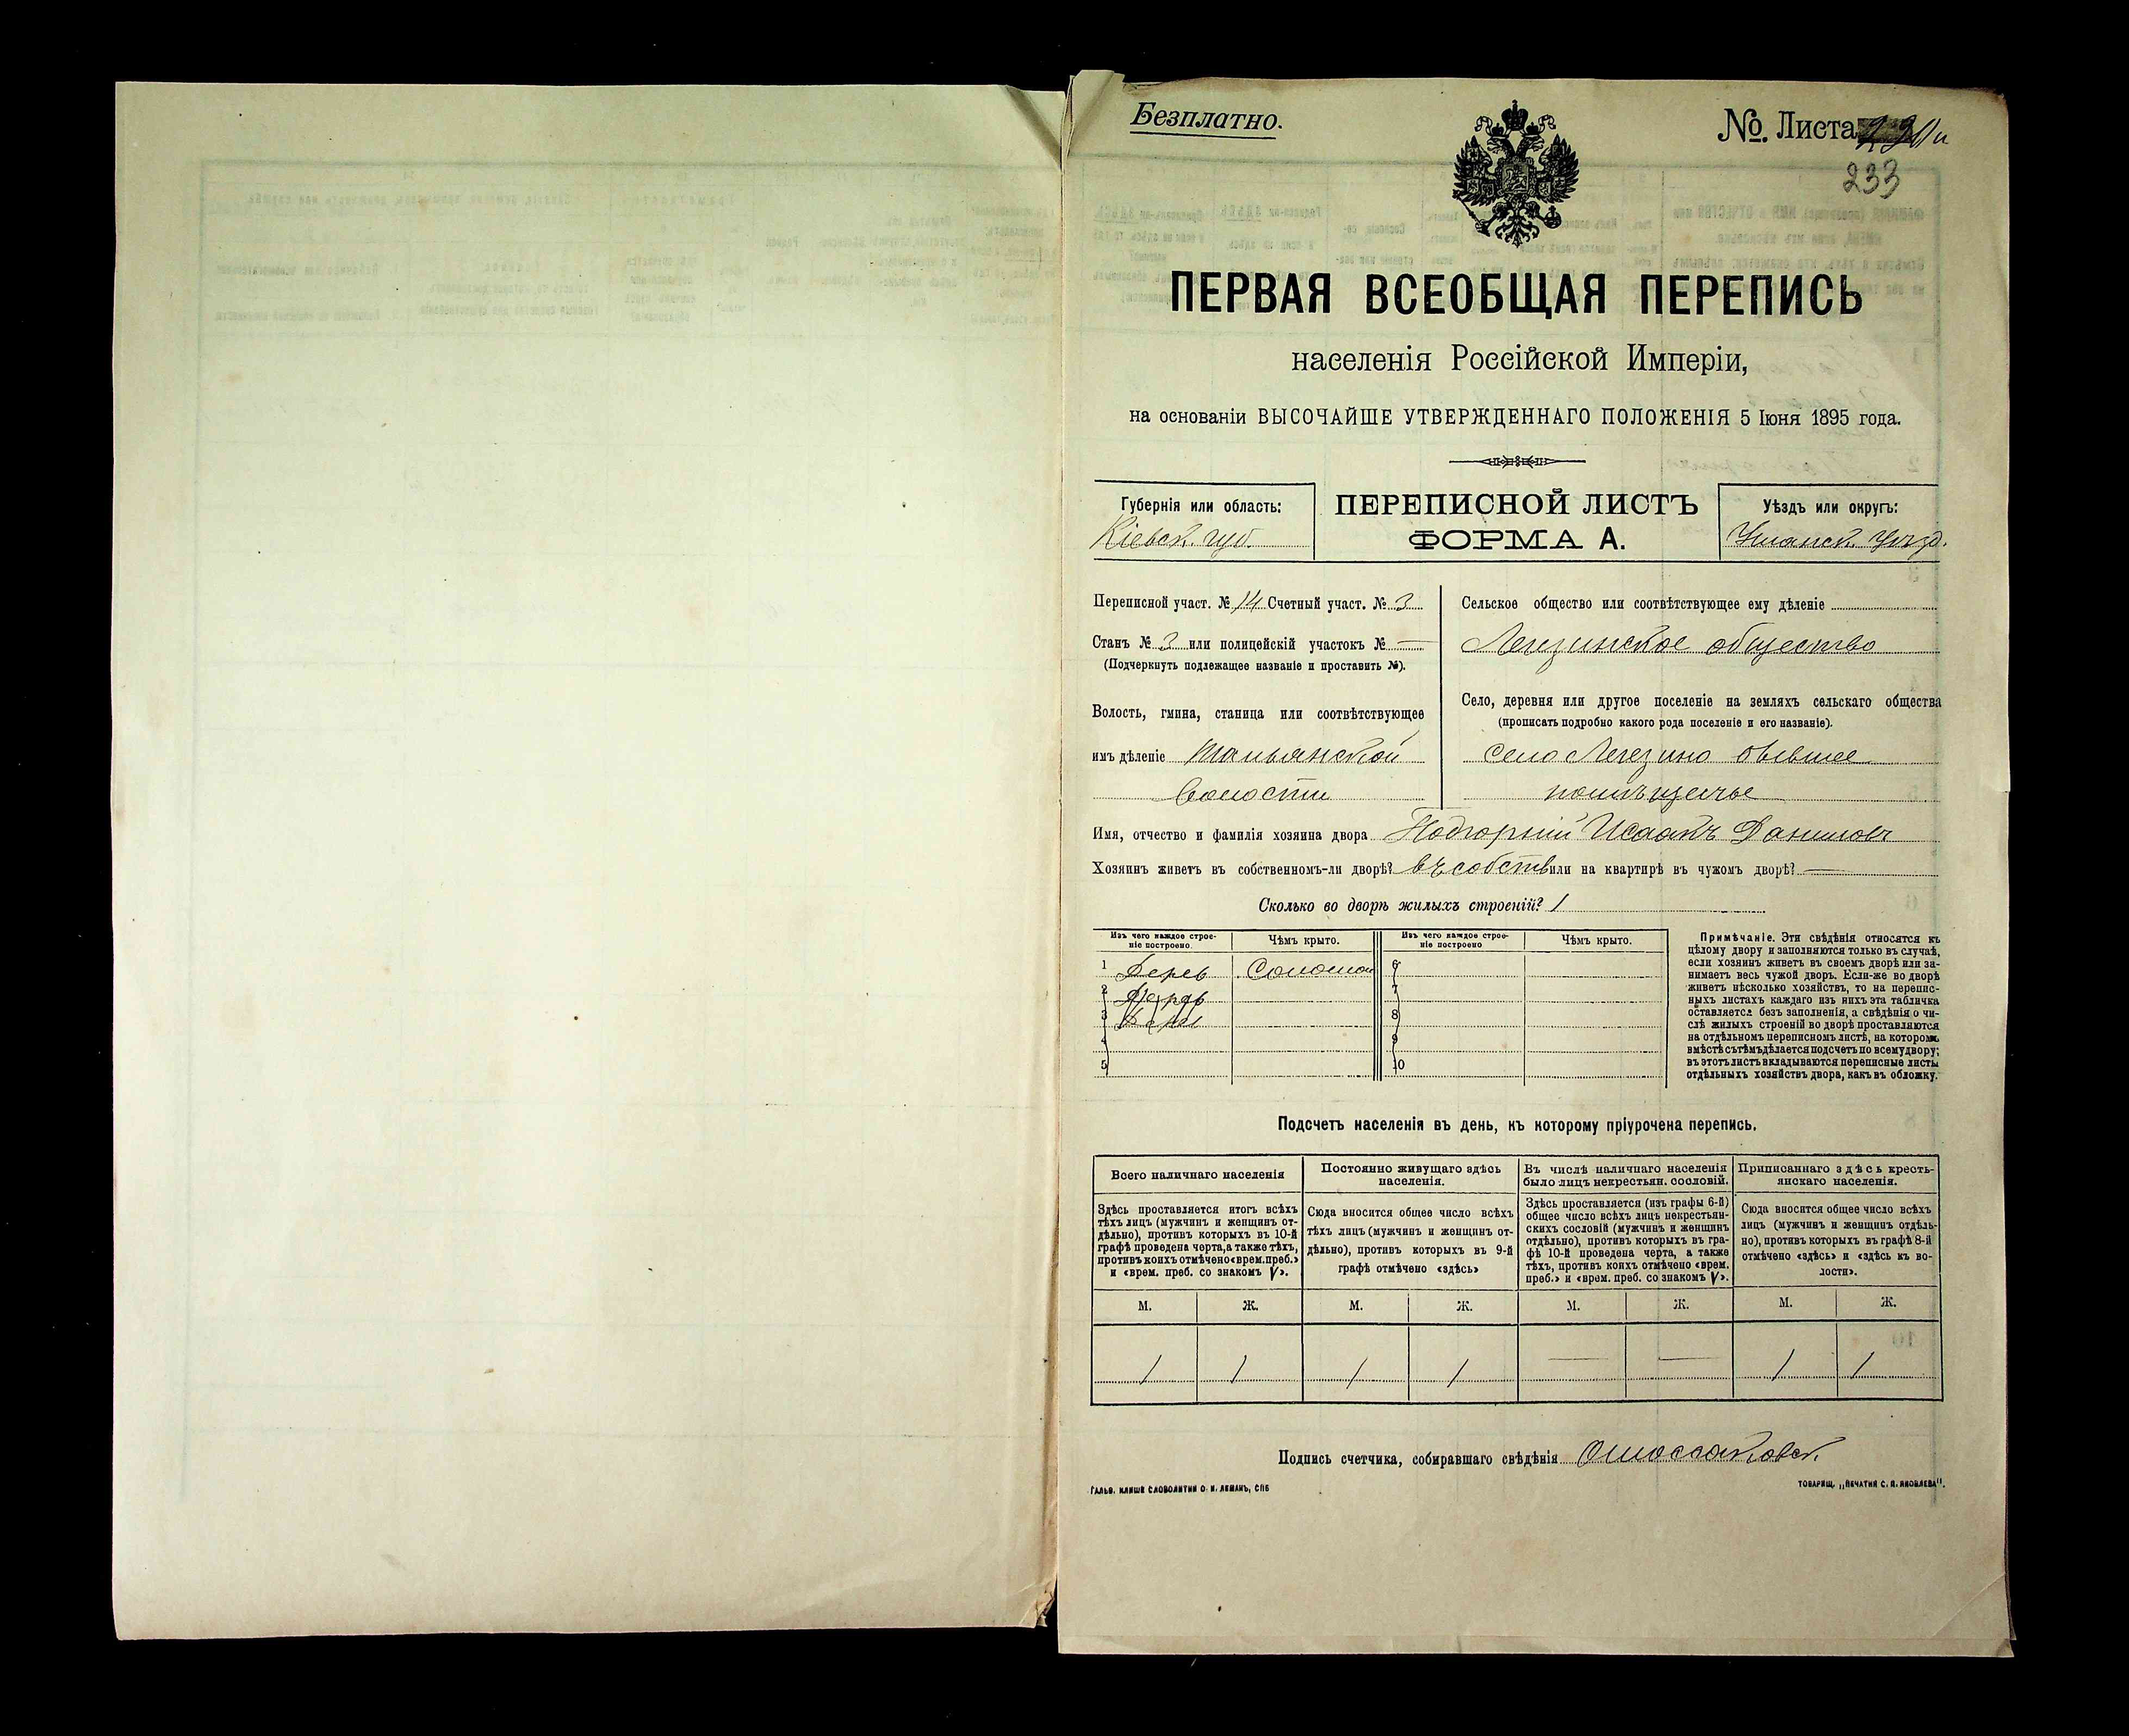 Безплатно.
№. Листа
233
ПЕРВАЯ ВСЕОБЩАЯ ПЕРЕПИСЬ
населенія Россійской Имперіи,
на основаніи ВЫСОЧАЙШЕ УТВЕРЖДЕННАГО ПОЛОЖЕНІЯ 5 Іюня 1895 года.
Губернія или область:
Кіевск. губ.
ПЕРЕПИСНОЙ ЛИСТЪ
ФОРМА А.
Уѣздъ или округъ:
Уманск. Уѣзд.
Переписной участ. № 14 Счетный участ. № 3
Станъ № 3 или полицейскій участокъ № —
(Подчеркнуть подлежащее названіе и проставить №).
Волость, гмина, станица или соотвѣтствующее
имъ дѣленіе Тальянской
волости
Сельское общество или соотвѣтствующее ему дѣленіе
Легезинское общество
Село, деревня или другое поселеніе на земляхъ сельскаго общества
(прописать подробно какого рода поселеніе и его названіе).
село Легезино бывшее
помѣщичье
Имя, отчество и фамилія хозяина двора Подгорній Исаакъ Даниловъ
Хозяинъ живетъ въ собственномъ-ли дворѣ? въ собств или на квартирѣ въ чужомъ дворѣ? —
Сколько во дворѣ жилыхъ строеній? 1
Изъ чего каждое строе-
ніе построено.
Чѣмъ крыто.
Изъ чего каждое строе-
ніе построено
Чѣмъ крыто.
1 Дерев Соломой 6
2 7
3 8
4 9
5 10
Примѣчаніе. Эти свѣдѣнія относятся къ
цѣлому двору и заполняются только въ случаѣ,
если хозяинъ живетъ въ своемъ дворѣ или за-
нимаетъ весь чужой дворъ. Если-же во дворѣ
живетъ нѣсколько хозяйствъ, то на перепис-
ныхъ листахъ каждаго изъ нихъ эта табличка
оставляется безъ заполненія, а свѣдѣнія о чи-
слѣ жилыхъ строеній во дворѣ проставляются
на отдѣльномъ переписномъ листѣ, на которомъ
вмѣстѣ съ тѣмъ дѣлается подсчетъ по всему двору;
въ этотъ листъ вкладываются переписные листы
отдѣльныхъ хозяйствъ двора, какъ въ обложку.
Подсчетъ населенія въ день, къ которому пріурочена перепись.
Всего наличнаго населенія
Здѣсь проставляется итогъ всѣхъ
тѣхъ лицъ (мужчинъ и женщинъ от-
дѣльно), противъ которыхъ въ 10-й
графѣ проведена черта, а также тѣхъ,
противъ коихъ отмѣчено «врем. преб.»
и «врем. преб. со знакомъ V».
Постоянно живущаго здѣсь
населенія.
Сюда вносится общее число всѣхъ
тѣхъ лицъ (мужчинъ и женщинъ от-
дѣльно), противъ которыхъ въ 9-й
графѣ отмѣчено «здѣсь»
Въ числѣ наличнаго населенія
было лицъ некрестьян. сословій.
Здѣсь проставляется (изъ графы 6-й)
общее число всѣхъ лицъ некрестьян-
скихъ сословій (мужчинъ и женщинъ
отдѣльно), противъ которыхъ въ гра-
фѣ 10-й проведена черта, а также
тѣхъ, противъ коихъ отмѣчено «врем.
преб.» и «врем. преб. со знакомъ V».
Приписаннаго здѣсь кресть-
янскаго населенія.
Сюда вносится общее число всѣхъ
лицъ (мужчинъ и женщинъ отдѣль-
но), противъ которыхъ въ графѣ 8-й
отмѣчено «здѣсь» и «здѣсь къ во-
лости».
М. Ж. М. Ж. М. Ж. М. Ж.
1 1 1 1 — — 1 1
Подпись счетчика, собиравшаго свѣдѣнія
ГАЛЬВ. КЛИШЕ СЛОВОЛИТНИ О. И. ЛЕМАНЪ, СПБ
ТОВАРИЩ. „ПЕЧАТНЯ С. П. ЯКОВЛЕВА".